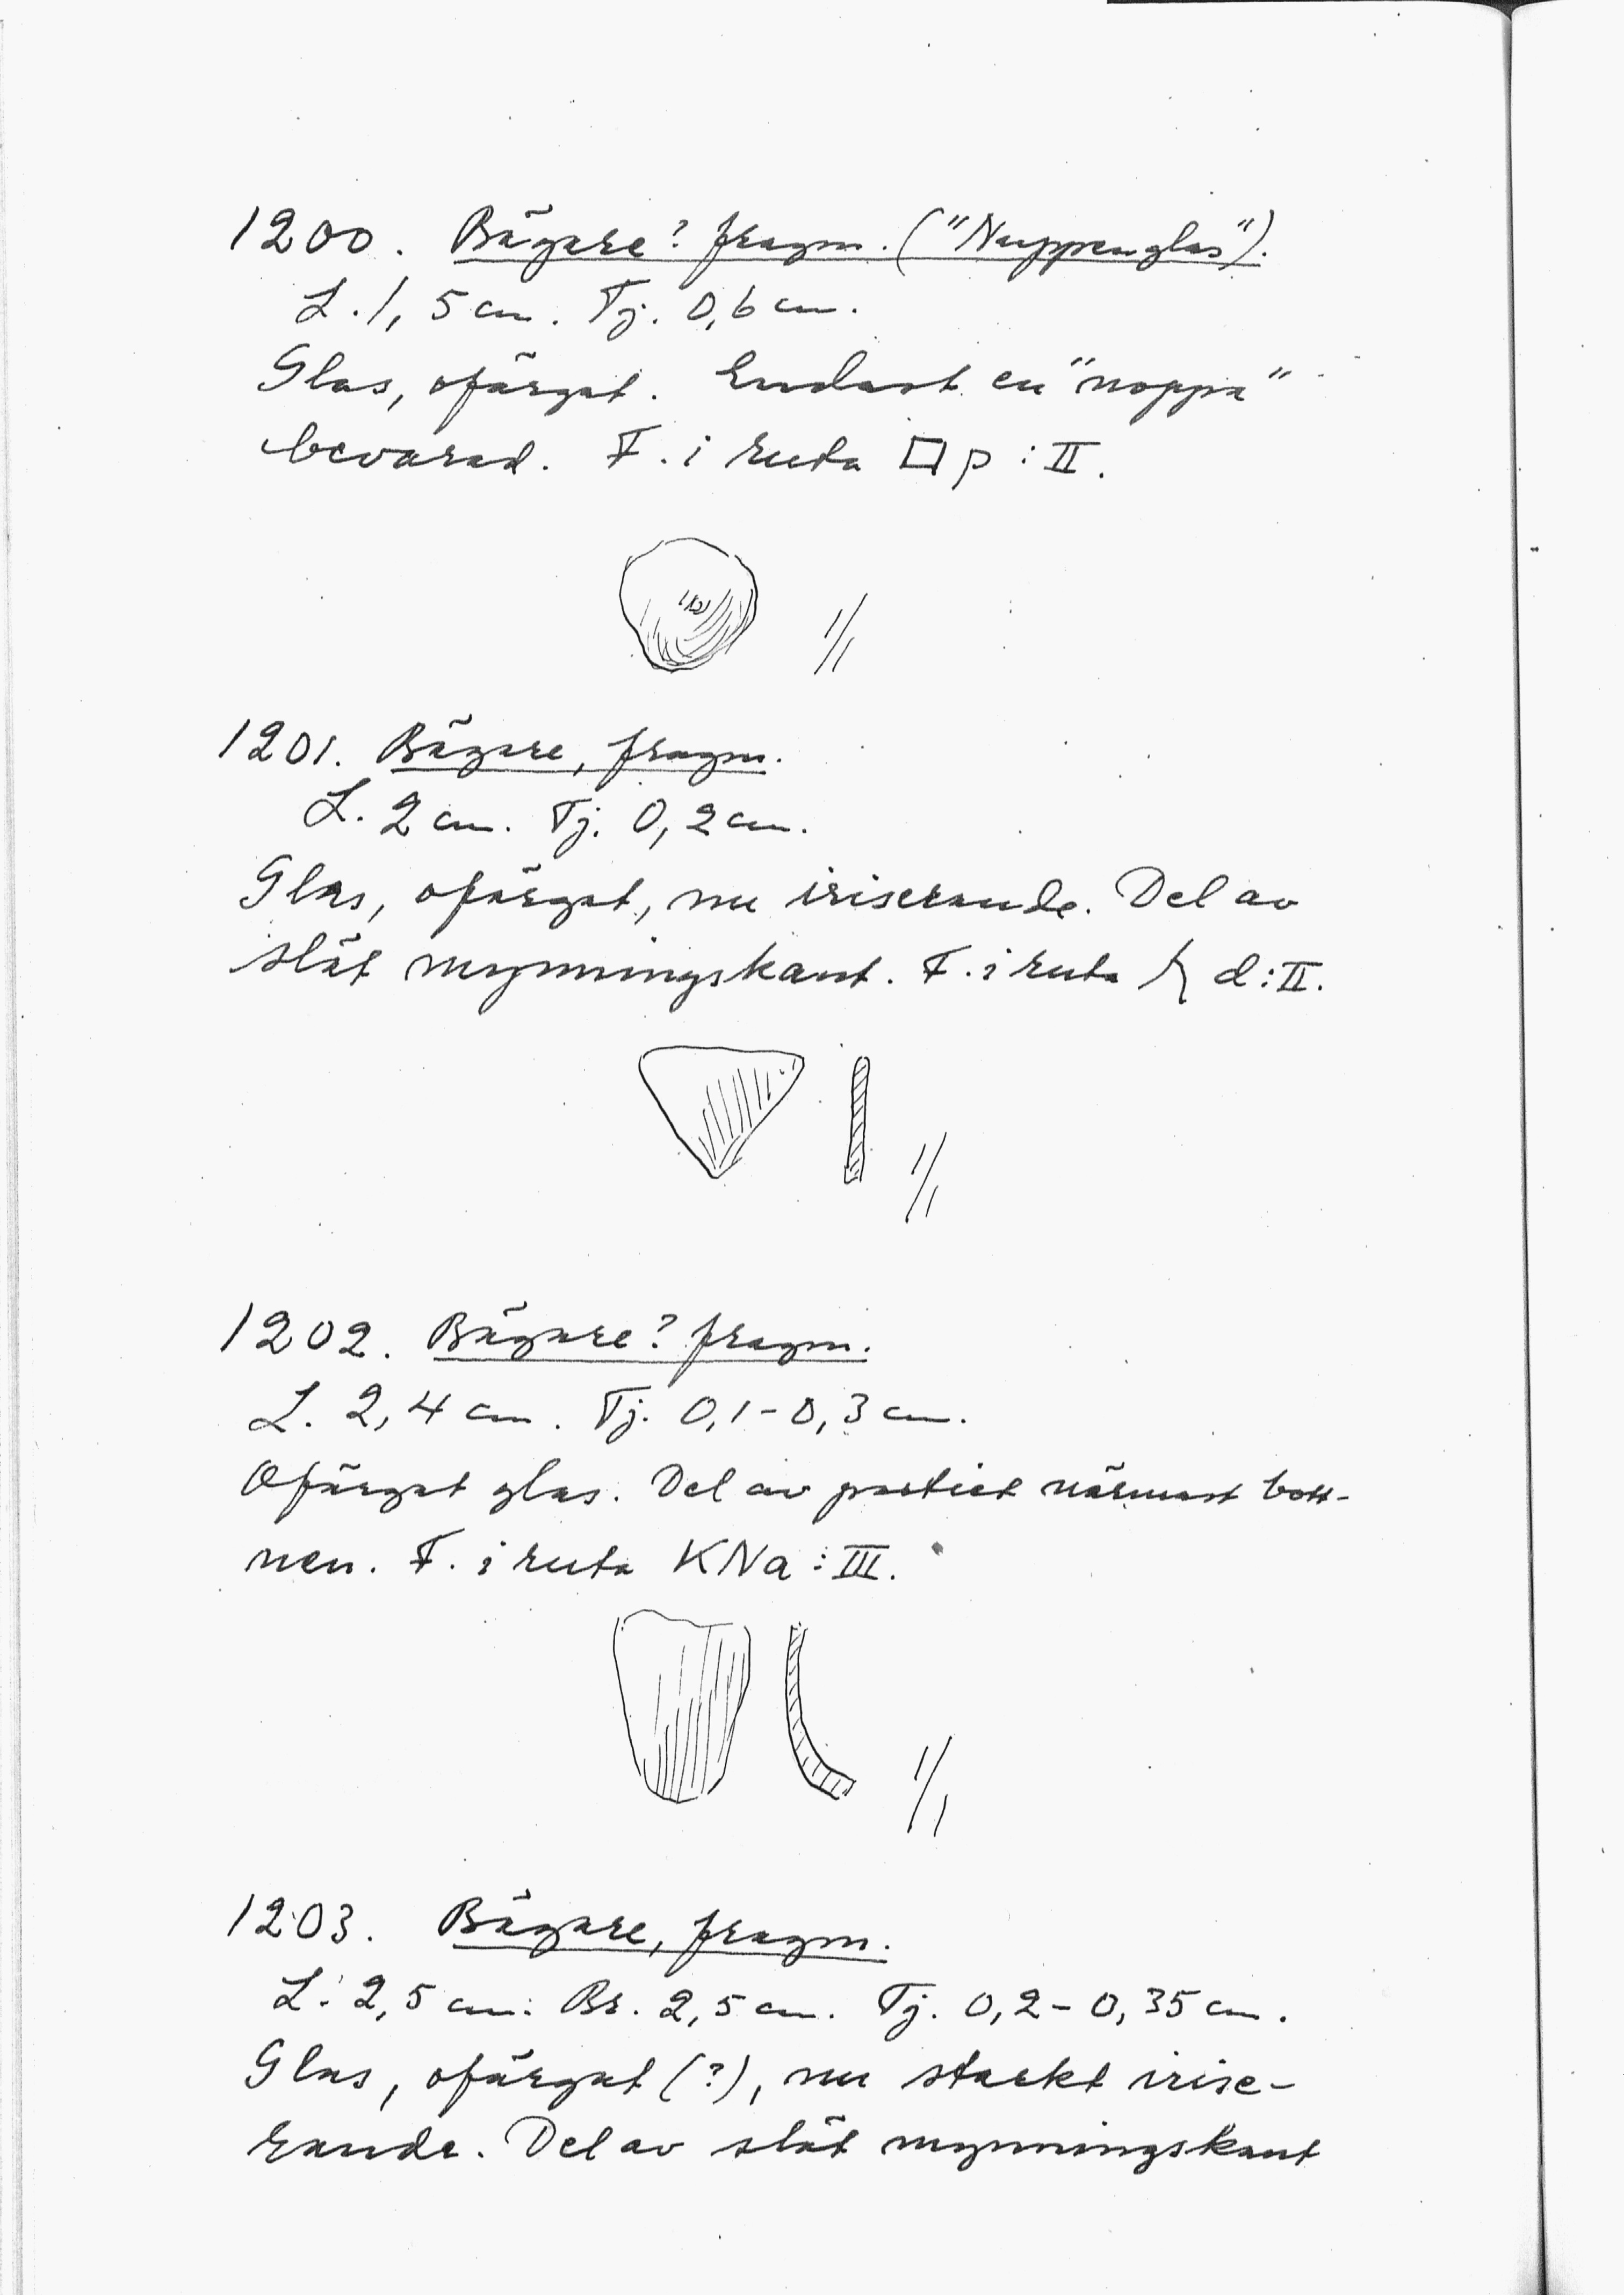 1200. Bägare? fragm. ("Nuppenglas").
L. 1,5 cm. Tj. 0,6 cm.
Glas, ofärgat. Endast en "noppa"
bevarad. F. i ruta □ p : II.
1/1
1201. Bägare, fragm.
L. 2 cm. Tj. 0,2 cm.
Glas, ofärgat, nu iriserande. Del av
slät mynningskant. F. i ruta d : II.
1/1
1202. Bägare? fragm.
L. 2,4 cm. Tj. 0,1-0,3 cm.
Ofärgat glas. Del av partiet närmast bott-
nen. F. i ruta KNa : III.
1/1
1203. Bägare, fragm.
L. 2,5 cm. Br. 2,5 cm. Tj. 0,2-0,35 cm.
Glas, ofärgat (?), nu starkt irise-
rande. Del av slät mynningskant